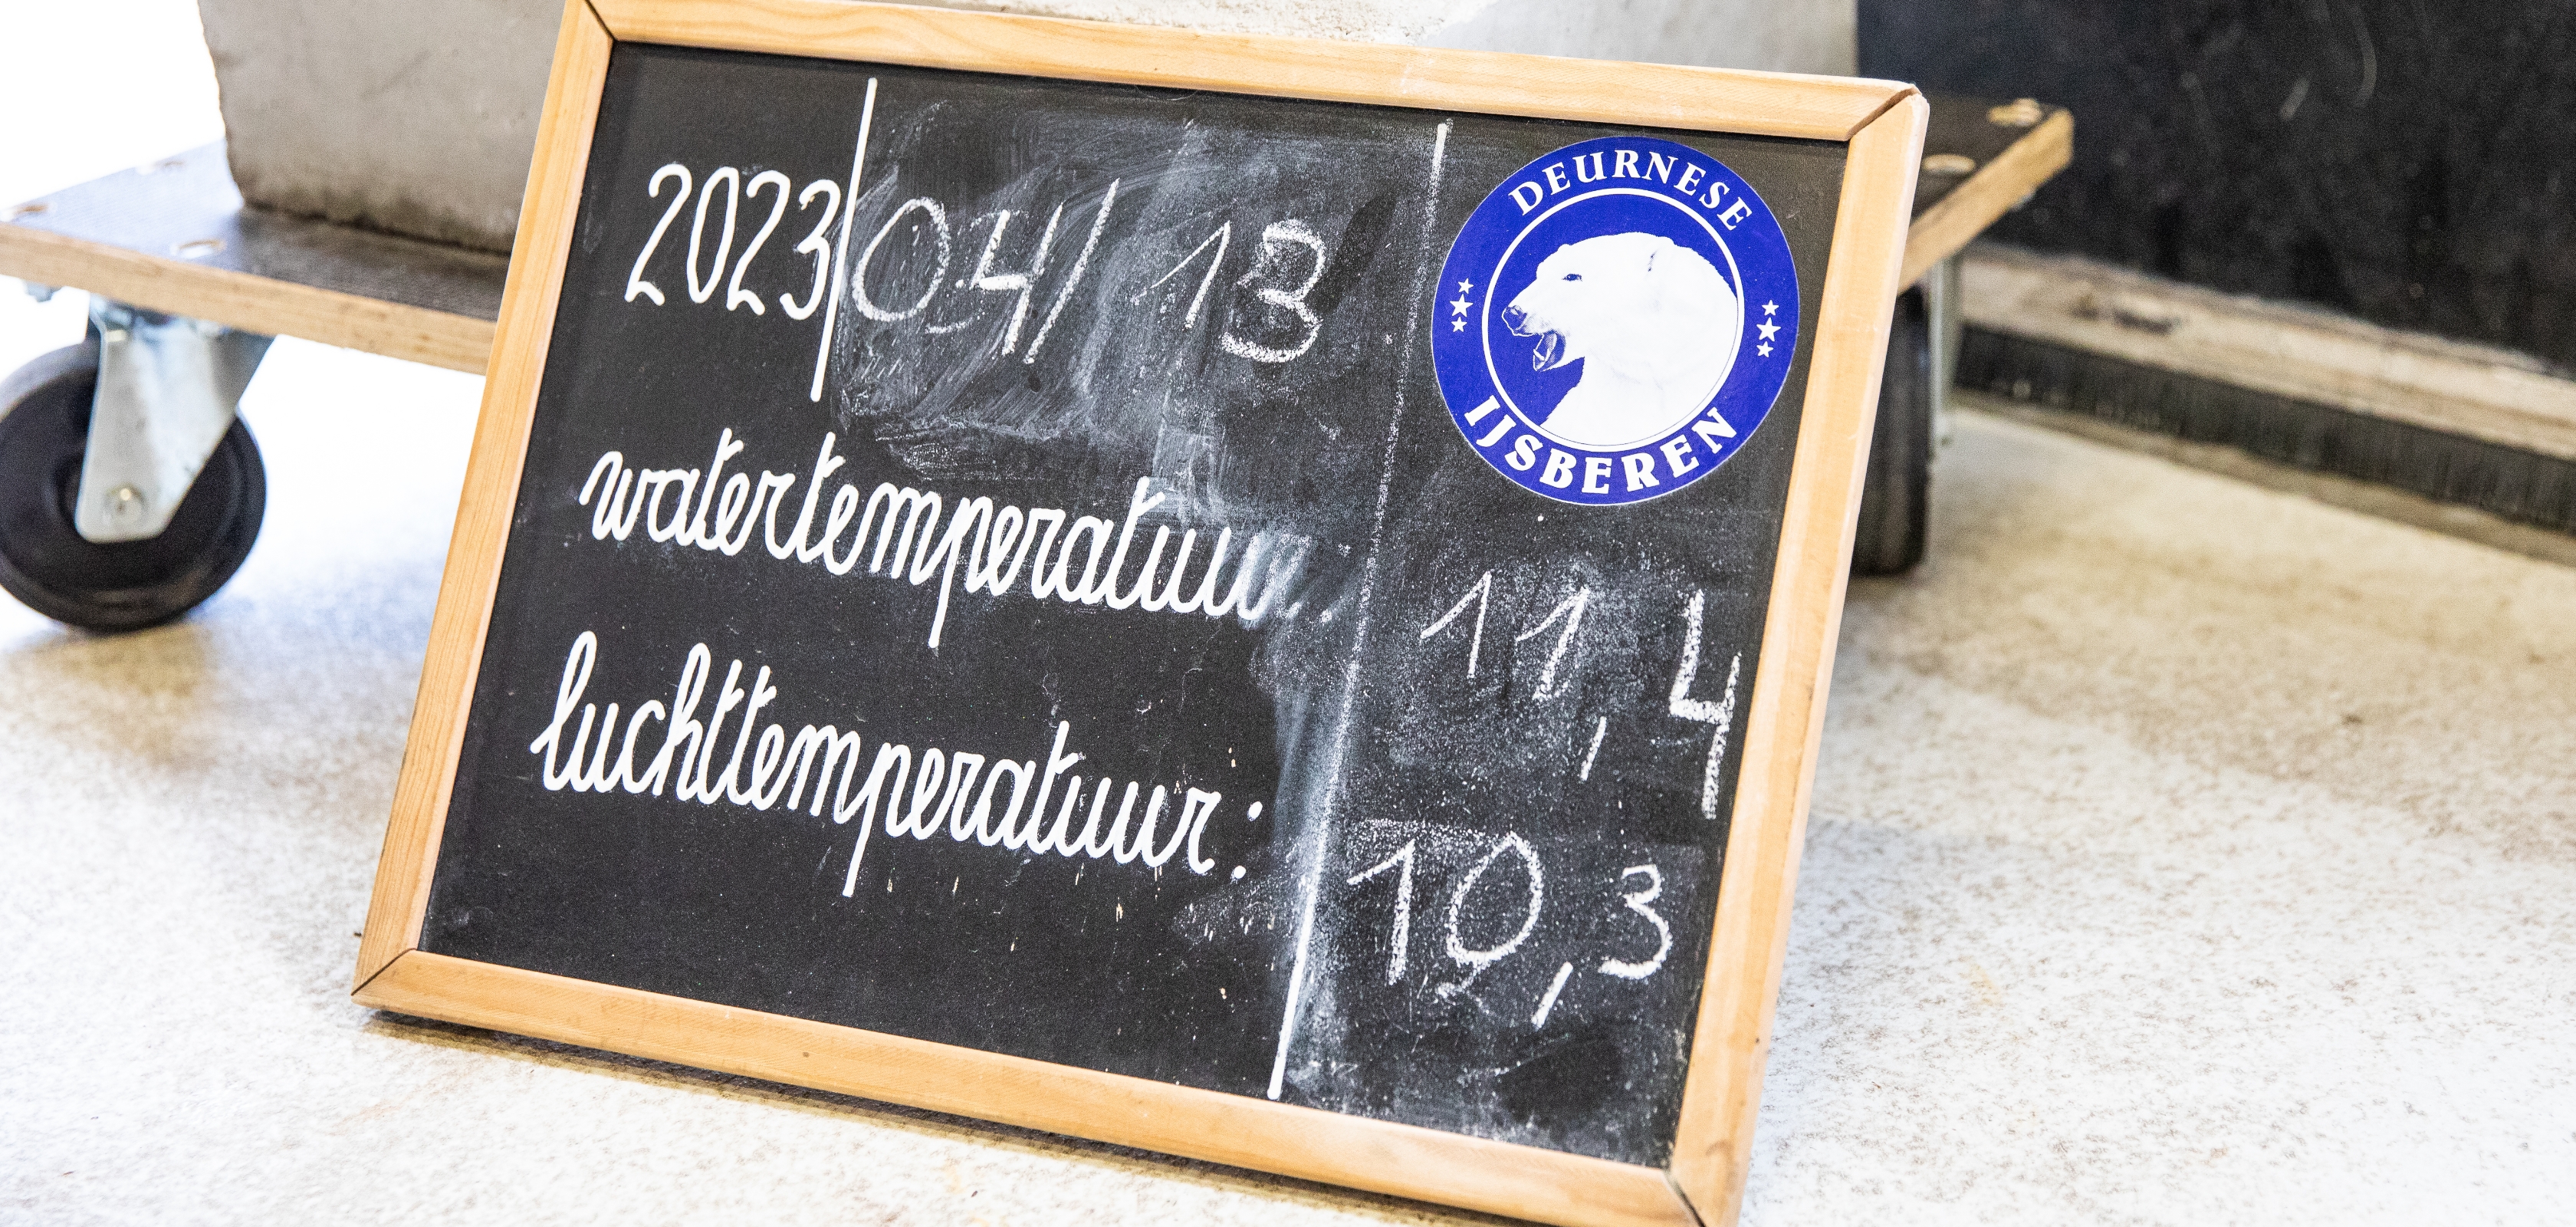 2023 04/13
DEURNESE
IJSBEREN
watertemperatuur: 11,4
luchttemperatuur: 10,3